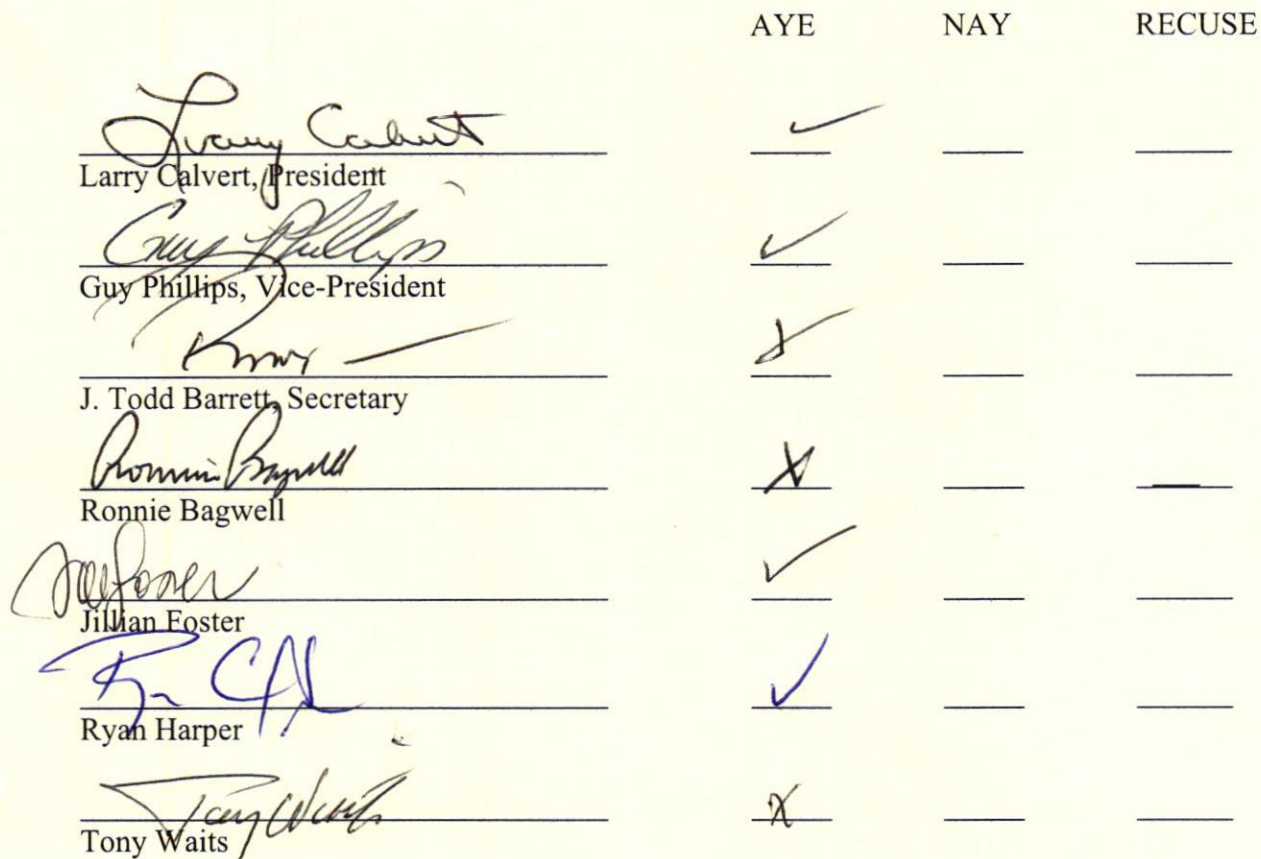 AYE NAY RECUSE
Larry Calvert ✓
Larry Calvert, President
Guy Phillips ✓
Guy Phillips, Vice-President
J. Todd Barrett, Secretary
Ronnie Bagwell X
Ronnie Bagwell
Jillian Foster
✓
Ryan Harper
✓
Tony Waits X
Tony Waits